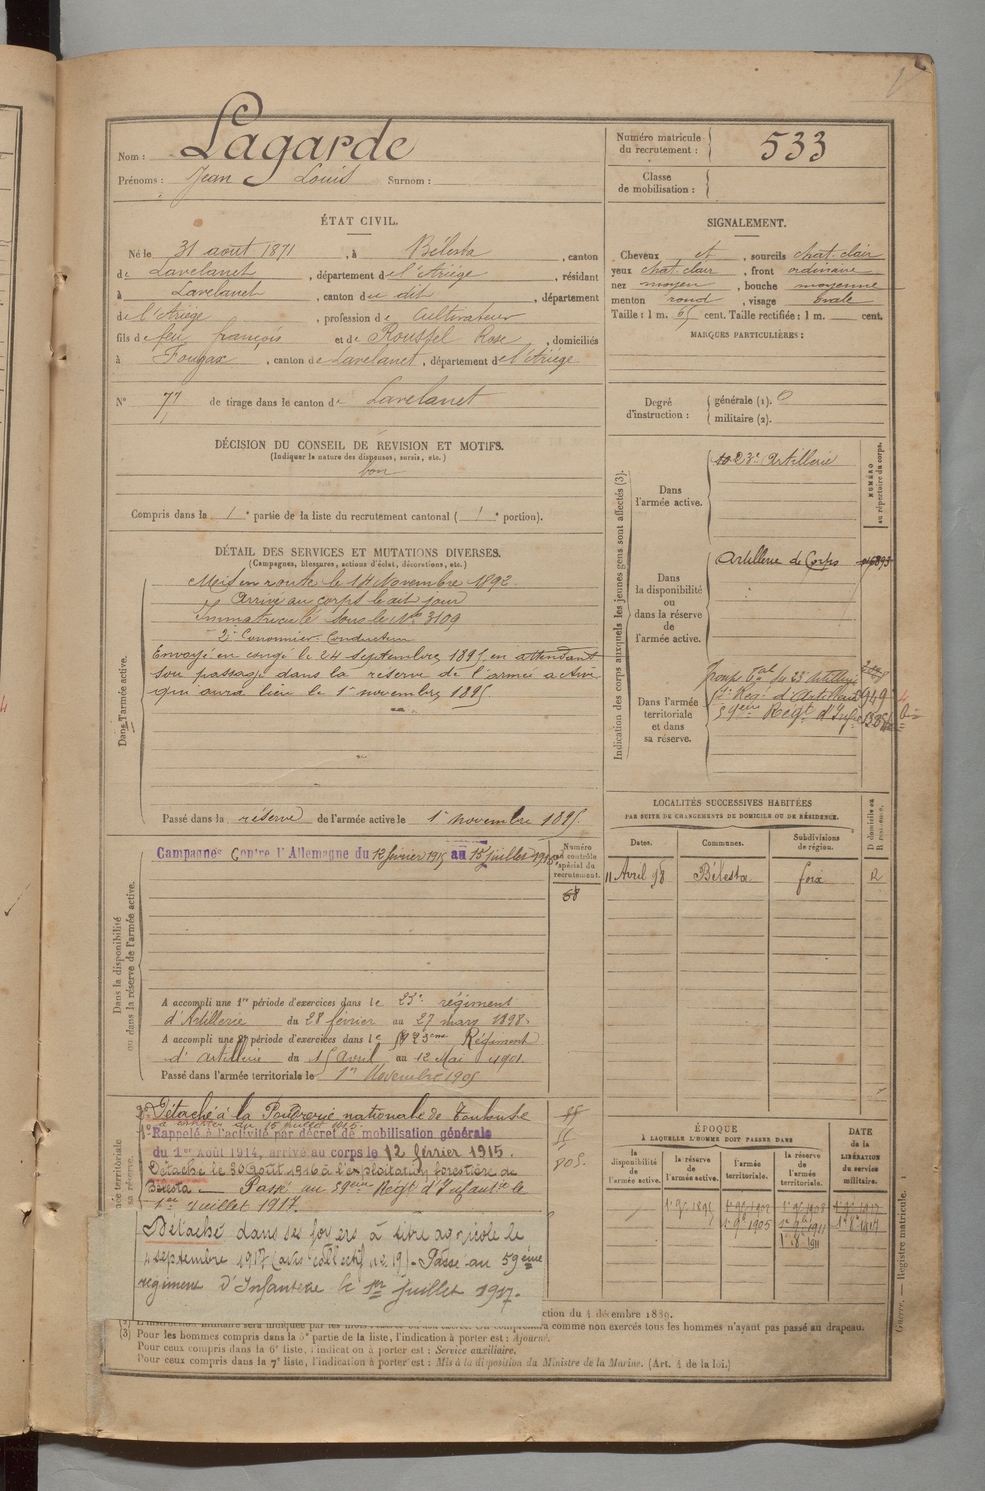 Nom : Lagarde
Prénoms : Jean Louis Surnom :
Numéro matricule du recrutement : 533
Classe de mobilisation :
ÉTAT CIVIL.
Né le 31 août 1871, à Bélesta, canton
de Lavelanet, département de l'Ariège, résidant
à Lavelanet, canton du dit, département
de l'Ariège, profession de cultivateur
fils de feu françois et de Roussel Rose, domiciliés
à Fougax, canton de Lavelanet, département de l'Ariège
N° 77 de tirage dans le canton de Lavelanet
SIGNALEMENT.
Cheveux et, sourcils chat. clair
yeux chat. clair, front ordinaire
nez moyen, bouche moyenne
menton rond, visage ovale
Taille : 1 m. 65 cent. Taille rectifiée : 1 m. cent.
MARQUES PARTICULIÈRES :
Degré d'instruction : générale (1). 0
militaire (2).
DÉCISION DU CONSEIL DE REVISION ET MOTIFS.
(Indiquer la nature des dispenses, sursis, etc.)
bon
Compris dans la 1e partie de la liste du recrutement cantonal (1e portion).
DÉTAIL DES SERVICES ET MUTATIONS DIVERSES.
(Campagnes, blessures, actions d'éclat, décorations, etc.)
Dans l'armée active.
Mis en route le 14 Novembre 1892.
Arrivé au corps le dit jour
Immatriculé sous le No 3109
2e Canonnier Conducteur
Envoyé en congé le 24 septembre 1895 en attendant
son passage dans la réserve de l'armée active
qui aura lieu le 1er novembre 1895
Passé dans la réserve de l'armée active le 1er novembre 1895.
Indication des corps auxquels les jeunes gens sont affectés (3).
NUMÉRO au répertoire du corps.
Dans l'armée active.
23e Artillerie
Dans la disponibilité ou dans la réserve de l'armée active.
Artillerie de Corps
Dans l'armée territoriale et dans sa réserve.
du 23 Artillerie
Régt d'Artillerie
59ème Régt d'Infie
LOCALITÉS SUCCESSIVES HABITÉES
PAR SUITE DE CHANGEMENTS DE DOMICILE OU DE RÉSIDENCE.
Dates. Communes. Subdivisions de région. D domicile ou R résidence.
11 Avril 98 Bélesta foix R
Dans la disponibilité ou dans la réserve de l'armée active.
Campagnes Contre l'Allemagne du 12 février 1915 au 15 juillet 1915
Numéro de contrôle spécial du recrutement.
68
A accompli une 1re période d'exercices dans le 23e régiment
d'Artillerie du 28 février au 27 mars 1898.
A accompli une 2e période d'exercices dans le 23ème Régiment
d'artillerie du 15 Avril au 12 Mai 1901.
Passé dans l'armée territoriale le 1er Novembre 1905
2° Détaché à la Poudrerie nationale de Toulouse
à compter du 15 juillet 1915.
1° Rappelé à l'activité par décret de mobilisation générale
du 1er Août 1914, arrivé au corps le 12 février 1915.
Détaché le 30 Août 1916 à l'exploitation forestière de
Bélesta — Passé au 59ème Régt d'Infanterie le
1er Juillet 1917.
Détaché dans ses foyers à titre agricole le
4 septembre 1917 (avis collectif n° 19). Passé au 59ème
régiment d'Infanterie le 1er Juillet 1917.
ÉPOQUE
À LAQUELLE L'HOMME DOIT PASSER DANS
DATE de la LIBÉRATION du service militaire.
la disponibilité de l'armée active.
la réserve de l'armée active.
l'armée territoriale.
la réserve de l'armée territoriale.
1er 9bre 1895 1er 9bre 1902 1er 9bre 1908 1er 9bre 1917
1er 9bre 1905 1er 9bre 1911
ction du 4 décembre 1889.
comme non exercés tous les hommes n'ayant pas passé au drapeau.
(3) Pour les hommes compris dans la 5e partie de la liste, l'indication à porter est : Ajourné.
Pour ceux compris dans la 6e liste, l'indication à porter est : Service auxiliaire.
Pour ceux compris dans la 7e liste, l'indication à porter est : Mis à la disposition du Ministre de la Marine. (Art. 4 de la loi.)
Guerre. — Registre matricule. 1